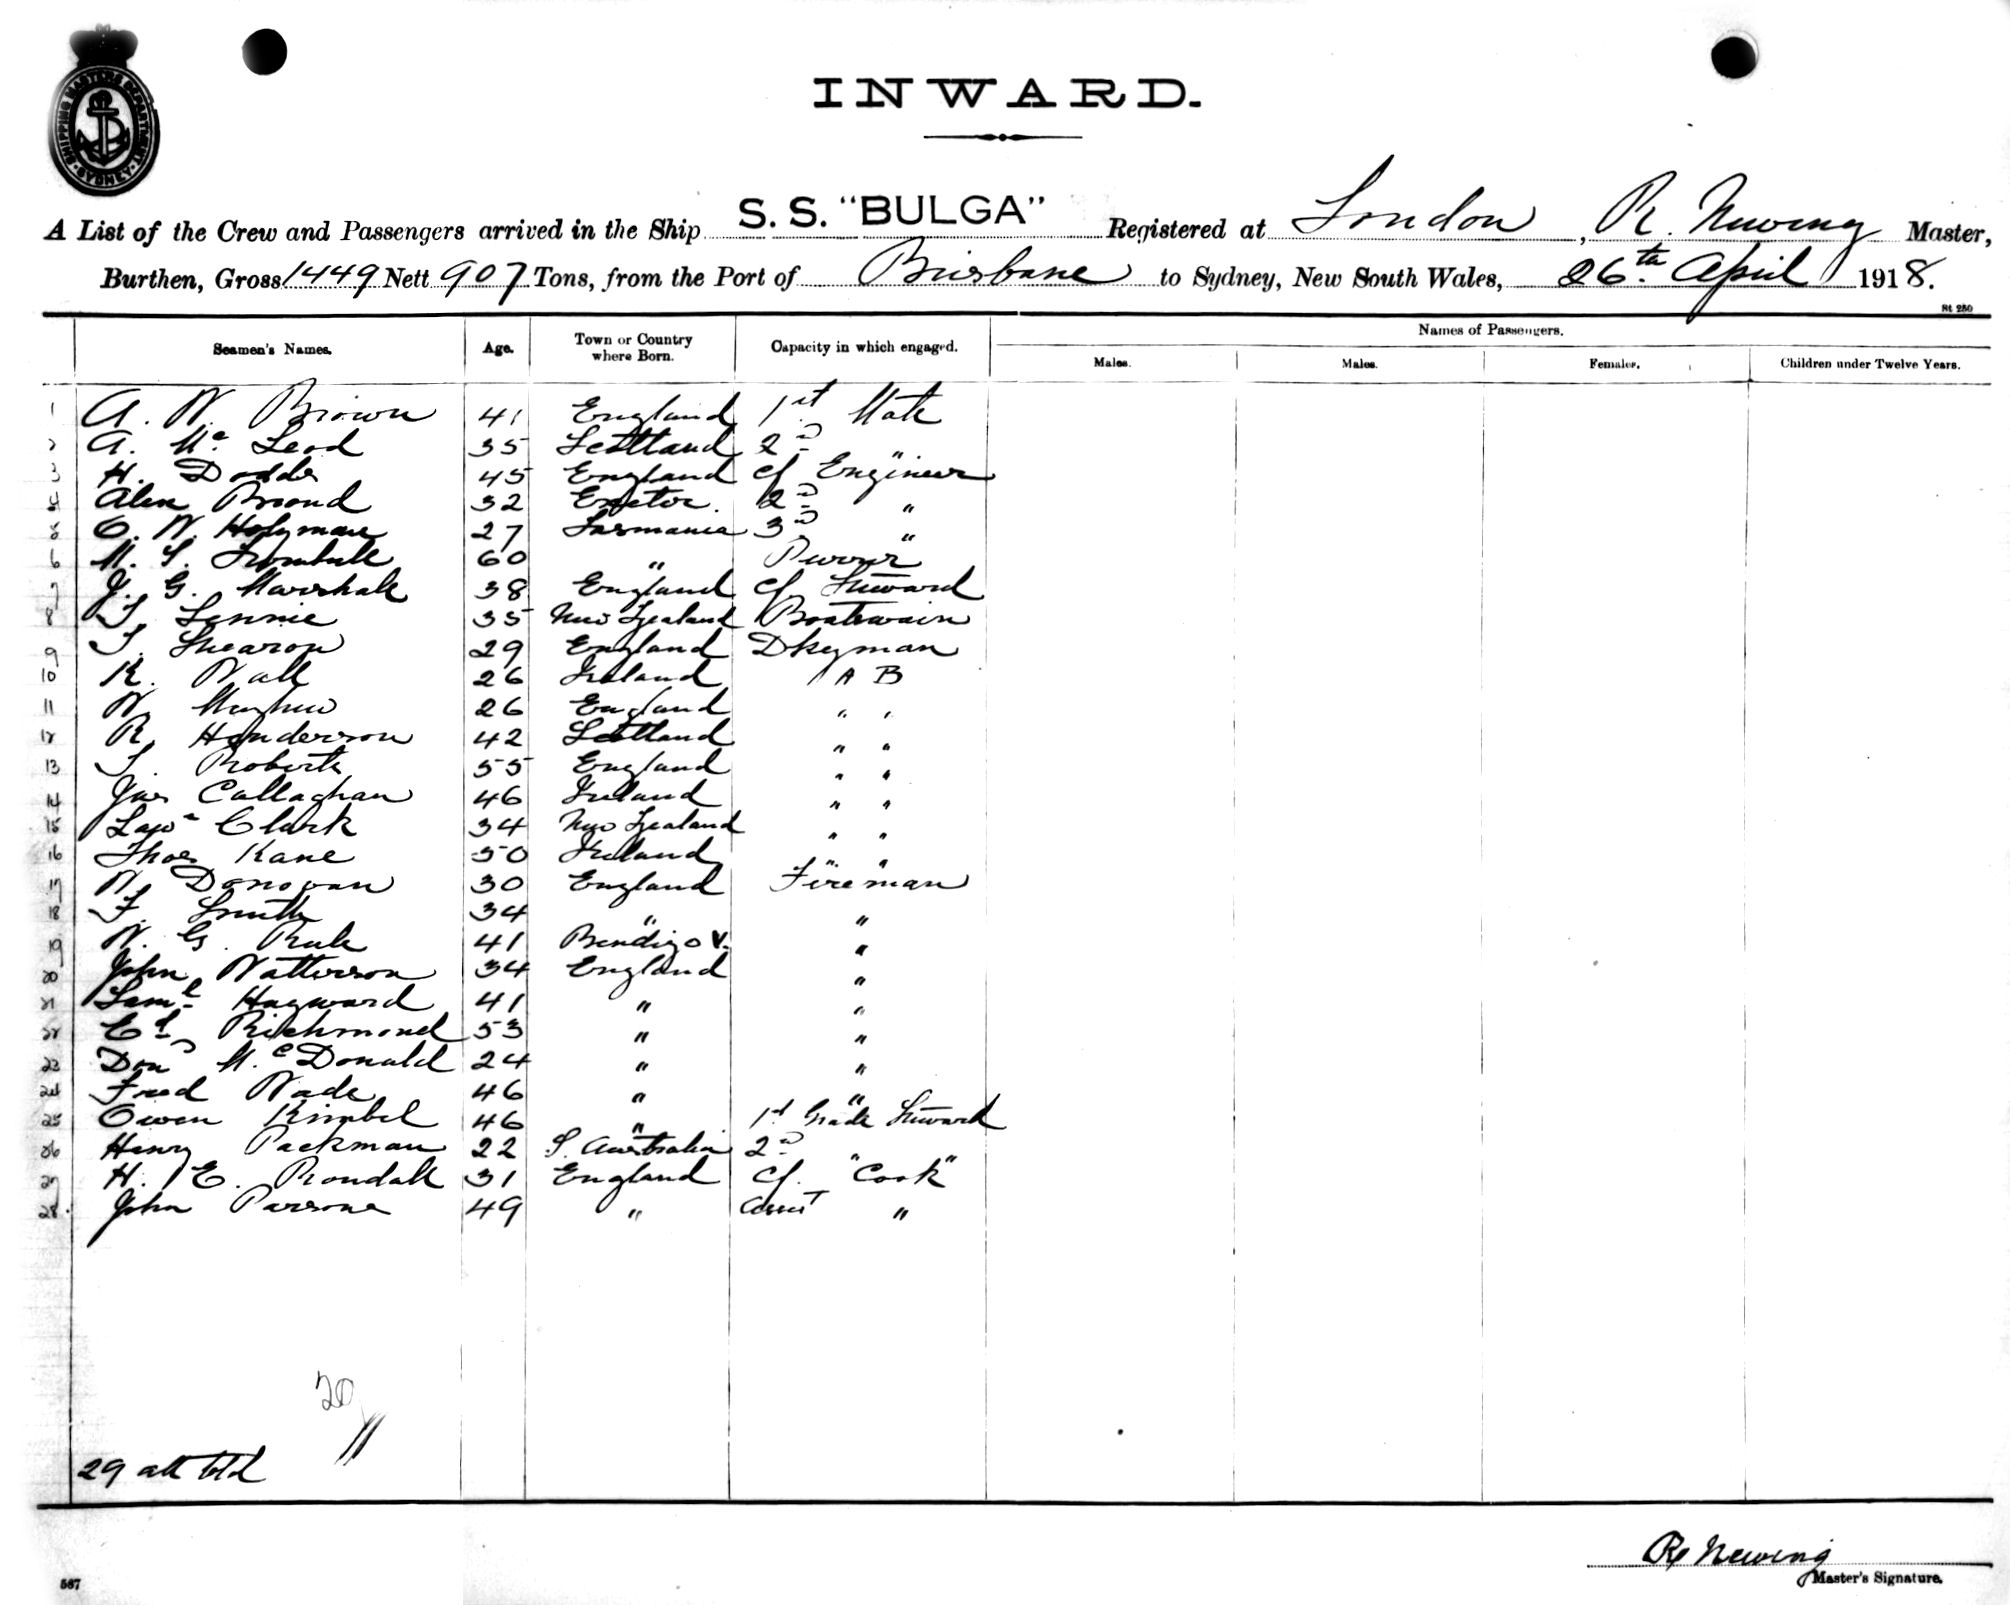 SHIPPING MASTERS DEPARTMENT SYDNEY
INWARD.
A List of the Crew and Passengers arrived in the Ship S. S. "BULGA" Registered at London, R. Newing Master,
Burthen, Gross 1449 Nett 907 Tons, from the Port of Brisbane to Sydney, New South Wales, 26th April 1918.
St 280
Seamen's Names. Age. Town or Country where Born. Capacity in which engaged. Names of Passengers.
Males. Males. Females. Children under Twelve Years.
1 A. W. Brown 41 England 1st Mate
2 A. Mc Leod 35 Scotland 2nd "
3 H. Dodds 45 England Cf Engineer
4 Alex Broond 32 Exeter. 2nd "
5 C. W. Holyman 27 Tasmania 3rd "
6 M. S. 60 " Purser
7 J. G. Marshall 38 England Cf Steward
8 T. Lennie 35 New Zealand Boatswain
9 T. Shearon 29 England Dkeyman
10 R. Wall 26 Ireland A B
11 W. Hughes 26 England " "
12 R. Henderson 42 Scotland " "
13 T. Roberts 55 England " "
14 Jas Callaghan 46 Ireland " "
15 Clark 34 New Zealand " "
16 Thos Kane 50 Ireland " "
17 W. Donovan 30 England Fireman
18 F. Smith 34 " "
19 W. G. Rule 41 Bendigo V. "
20 John Watterson 34 England "
21 Saml Hayward 41 " "
22 Cd Richmond 53 " "
23 Don Mc Donald 24 " "
24 Fred Wade 46 " "
25 Owen Kimbel 46 " 1st Grade Steward
26 Henry Packman 22 S. Australia 2nd " "
27 H. E. Rondall 31 England Cf. Cook
28. John Parsons 49 " Asst "
20
29 all told
R Newing
Master's Signature.
587